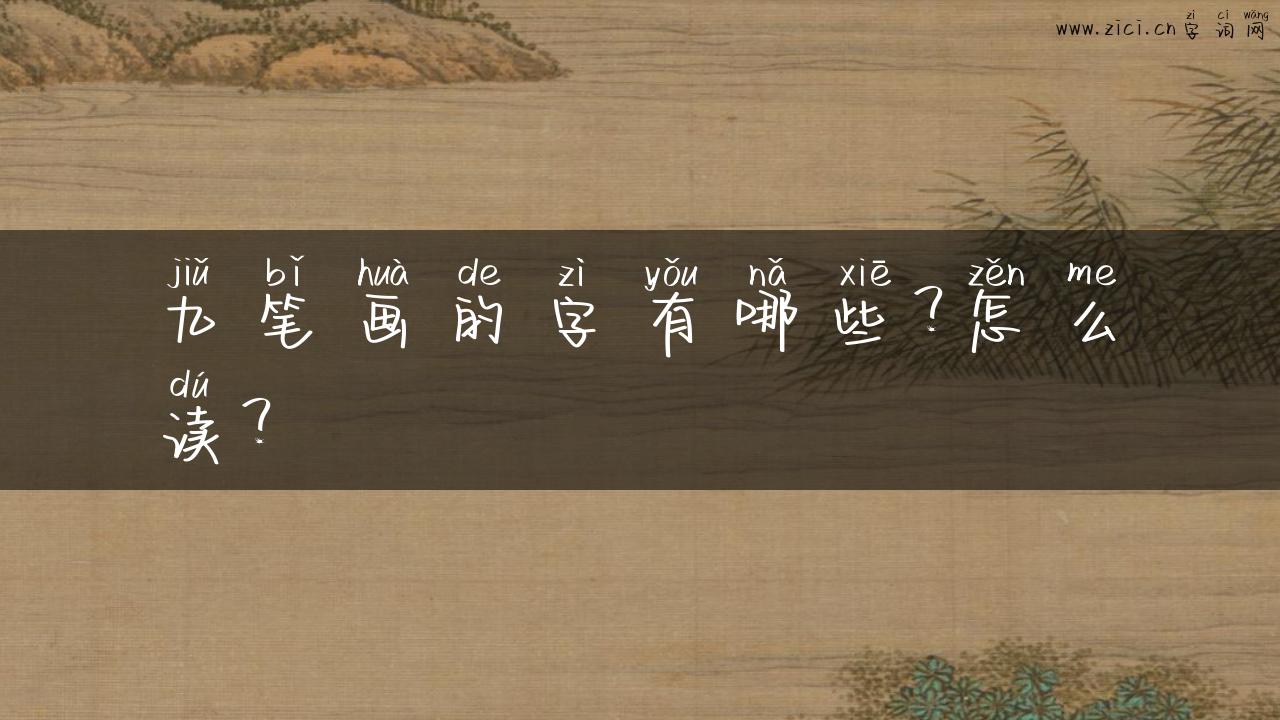 zì cí wǎng
www.zici.cn 字词网
jiǔ bǐ huà de zì yǒu nǎ xiē zěn me
九笔画的字有哪些?怎么
dú
读?